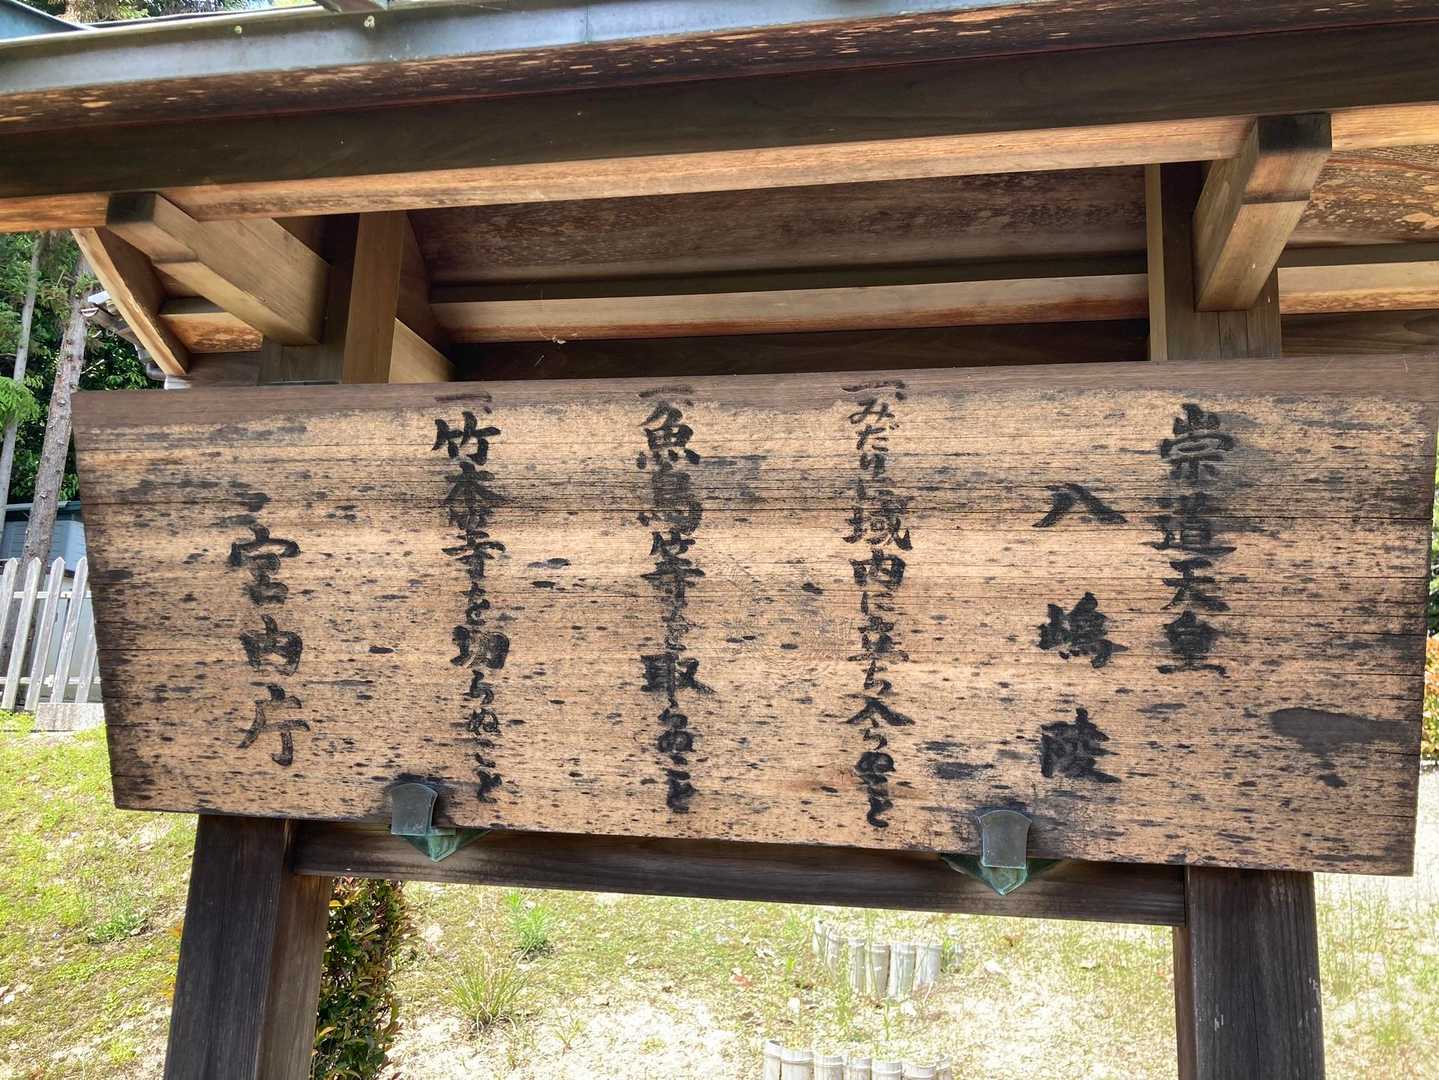 崇道天皇
八嶋陵
一、みだりに域内に立ち入らぬこと
一、魚鳥等を取らぬこと
一、竹木等を切らぬこと
宮内庁